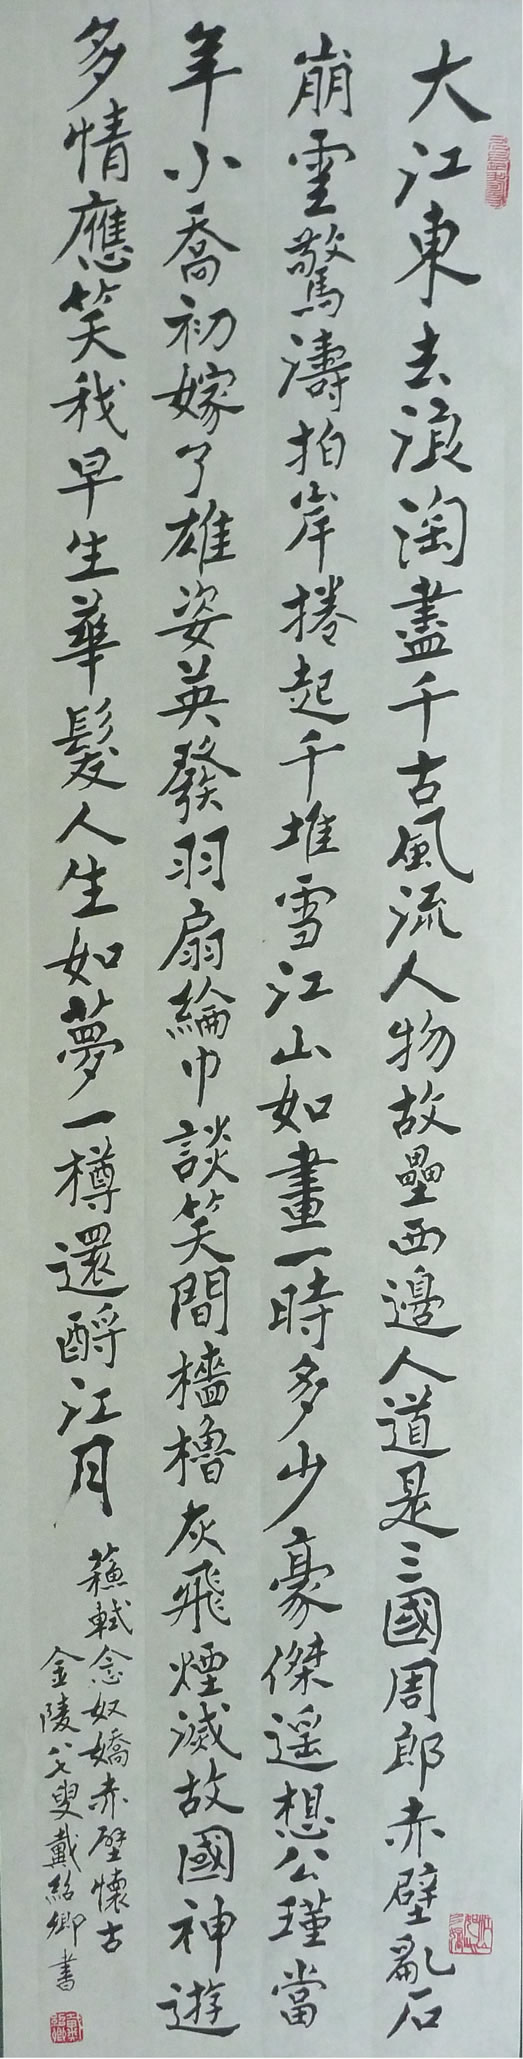 大江東去浪淘盡千古風流人物故壘西邊人道是三國周郎赤壁亂石
崩雲驚濤拍岸捲起千堆雪江山如畫一時多少豪傑遥想公瑾當
年小喬初嫁了雄姿英發羽扇綸巾談笑間檣櫓灰飛煙滅故國神遊
多情應笑我早生華髮人生如夢一樽還酹江月
蘇軾念奴嬌赤壁懷古
金陵八七叟戴紹卿書